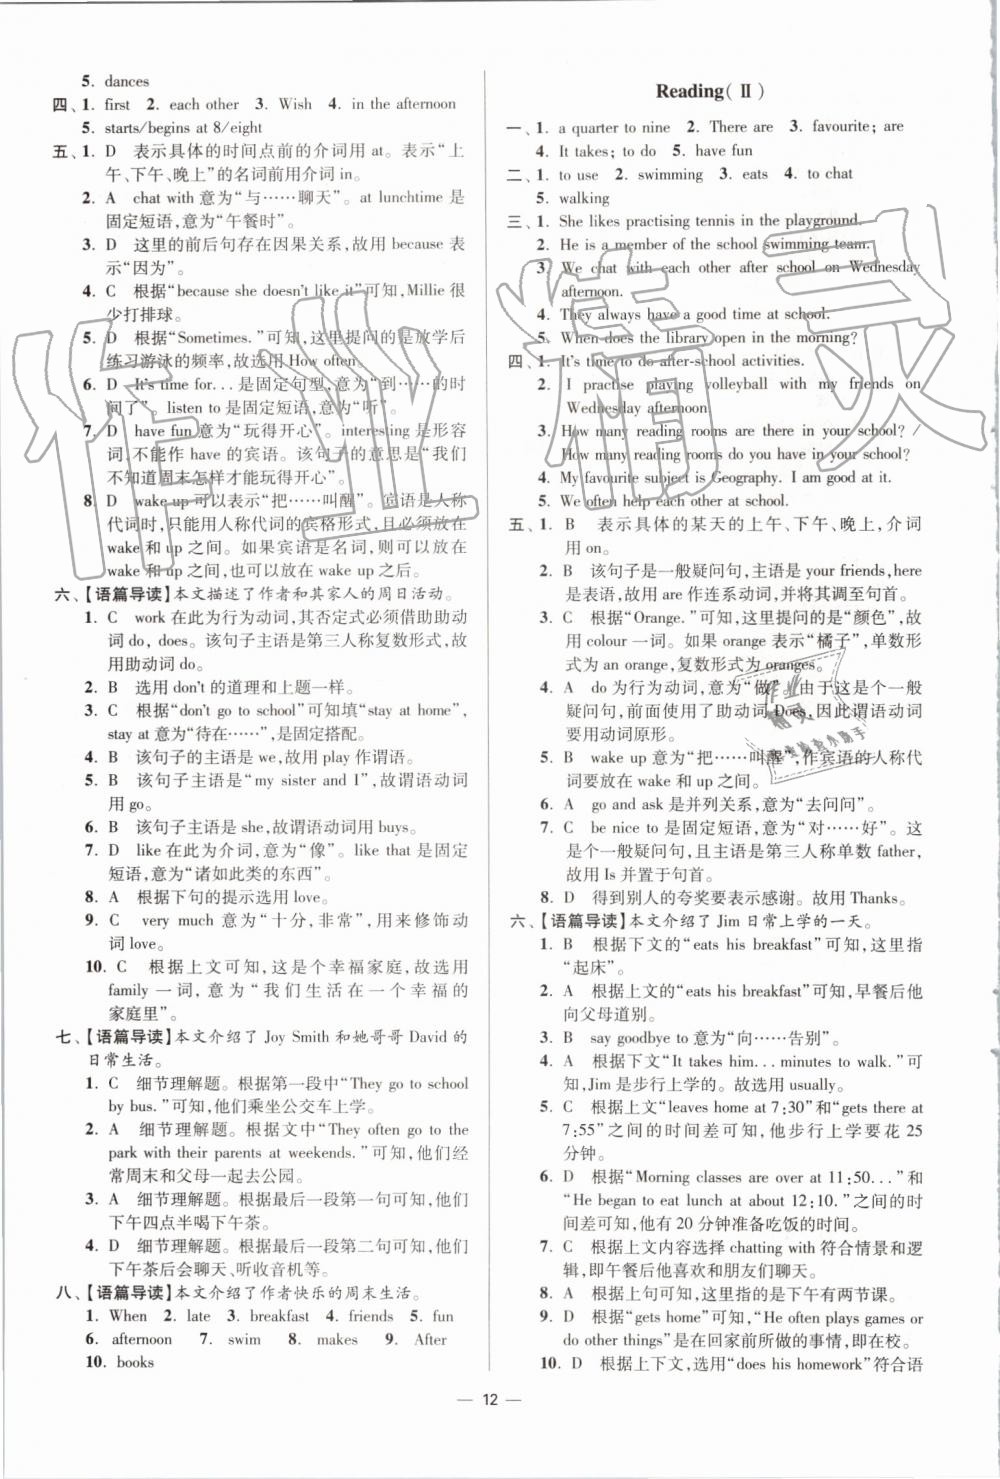 5. dances
四、1. first 2. each other 3. Wish 4. in the afternoon
5. starts/begins at 8/eight
五、1. D 表示具体的时间点前的介词用 at。表示“上
午、下午、晚上”的名词前用介词 in。
2. A chat with 意为“与……聊天”。at lunchtime 是
固定短语,意为“午餐时”。
3. D 这里的前后句存在因果关系,故用 because 表
示“因为”。
4. C 根据“because she doesn't like it”可知,Millie 很
少打排球。
5. D 根据“Sometimes.”可知,这里提问的是放学后
练习游泳的频率,故选用 How often。
6. D It's time for... 是固定句型,意为“到……的时
间了”。listen to 是固定短语,意为“听”。
7. D have fun 意为“玩得开心”。interesting 是形容
词,不能作 have 的宾语。该句子的意思是“我们
不知道周末怎样才能玩得开心”。
8. D wake up 可以表示“把……叫醒”。宾语是人称
代词时,只能用人称代词的宾格形式,且必须放在
wake 和 up 之间。如果宾语是名词,则可以放在
wake 和 up 之间,也可以放在 wake up 之后。
六、【语篇导读】本文描述了作者和其家人的周日活动。
1. C work 在此为行为动词,其否定式必须借助助
动词 do, does。该句子主语是第三人称复数形式,故
用助动词 do。
2. B 选用 don't 的道理和上题一样。
3. C 根据“don't go to school”可知填“stay at home”,
stay at 意为“待在……”,是固定搭配。
4. B 该句子的主语是 we,故用 play 作谓语。
5. B 该句子主语是“my sister and I”,故谓语动词
用 go。
6. B 该句子主语是 she,故谓语动词用 buys。
7. D like 在此为介词,意为“像”。like that 是固定
短语,意为“诸如此类的东西”。
8. A 根据下句的提示选用 love。
9. C very much 意为“十分,非常”,用来修饰动
词 love。
10. C 根据上文可知,这是个幸福家庭,故选用
family 一词,意为“我们生活在一个幸福的
家庭里”。
七、【语篇导读】本文介绍了 Joy Smith 和她哥哥 David 的
日常生活。
1. C 细节理解题。根据第一段中“They go to school
by bus.”可知,他们乘坐公交车上学。
2. A 细节理解题。根据文中“They often go to the
park with their parents at weekends.”可知,他们经
常周末和父母一起去公园。
3. A 细节理解题。根据最后一段第一句可知,他们
下午四点半喝下午茶。
4. D 细节理解题。根据最后一段第二句可知,他们
下午茶后会聊天、听收音机等。
八、【语篇导读】本文介绍了作者快乐的周末生活。
1. When 2. late 3. breakfast 4. friends 5. fun
6. afternoon 7. swim 8. makes 9. After
10. books
Reading(Ⅱ)
一、1. a quarter to nine 2. There are 3. favourite; are
4. It takes; to do 5. have fun
二、1. to use 2. swimming 3. eats 4. to chat
5. walking
三、1. She likes practising tennis in the playground.
2. He is a member of the school swimming team.
3. We chat with each other after school on Wednesday
afternoon.
4. They always have a good time at school.
5. When does the library open in the morning?
四、1. It's time to do after-school activities.
2. I practise playing volleyball with my friends on
Wednesday afternoon.
3. How many reading rooms are there in your school? /
How many reading rooms do you have in your school?
4. My favourite subject is Geography. I am good at it.
5. We often help each other at school.
五、1. B 表示具体的某天的上午、下午、晚上,介词
用 on。
2. B 该句子是一般疑问句,主语是 your friends, here
是表语,故用 are 作连系动词,并将其调至句首。
3. C 根据“Orange.”可知,这里提问的是“颜色”,故
用 colour 一词。如果 orange 表示“橘子”,单数形
式为 an orange,复数形式为 oranges。
4. A do 为行为动词,意为“做”。由于这是个一般
疑问句,前面使用了助动词 Does,因此谓语动词
要用动词原形。
5. B wake up 意为“把……叫醒”,作宾语的人称代
词要放在 wake 和 up 之间。
6. A go and ask 是并列关系,意为“去问问”。
7. C be nice to 是固定短语,意为“对……好”。这
是个一般疑问句,且主语是第三人称单数 father,
故用 Is 并于句首。
8. D 得到别人的夸奖要表示感谢。故用 Thanks。
六、【语篇导读】本文介绍了 Jim 日常上学的一天。
1. B 根据下文的“eats his breakfast”可知,这里指
“起床”。
2. A 根据上文的“eats his breakfast”可知,早餐后他
向父母道别。
3. B say goodbye to 意为“向……告别”。
4. A 根据下文“It takes him... minutes to walk.”可
知,Jim 是步行上学的。故选用 usually。
5. C 根据上文“leaves home at 7:30”和“gets there at
7:55”之间的时间差可知,他步行上学要花 25
分钟。
6. D 根据“Morning classes are over at 11:50...”和
“He began to eat lunch at about 12:10.”之间的时
间差可知,他有 20 分钟准备吃饭的时间。
7. C 根据上文内容选择 chatting with 符合情景和逻
辑,即午餐后他喜欢和朋友们聊天。
8. A 根据上句可知,这里指的是下午有两节课。
9. D 根据“gets home”可知,“He often plays games or
do other things”是在回家前所做的事情,即在校。
10. D 根据上下文,选用“does his homework”符合语
— 12 —
作业精灵